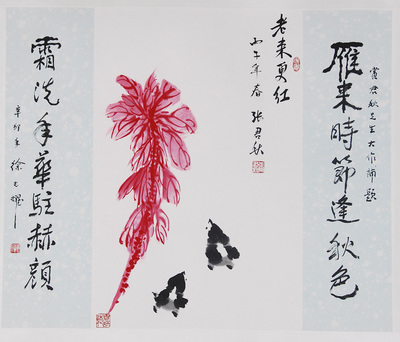 賞君秋先生大作補題
雁来時節逢秋色
老来更红
丙午年春 张君秋
霜洗年華駐赫顔
辛卯年徐